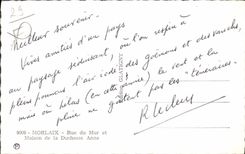 Meilleur souvenir -
Vives amitiés d'un pays
au paysage séduisant, où l'on respire à
pleins poumons l'air iodé des goémons et des varechs,
mais où hélas (en cette année) le vent et la
pluie ne goûtent pas les "
R
9005 - MORLAIX - Rue du Mur et
Maison de la Duchesse Anne